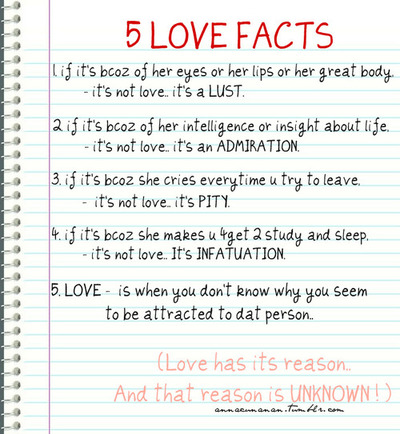 5 LOVE FACTS
1. if it's bcoz of her eyes or her lips or her great body,
- it's not love.. it's a LUST.
2 if it's bcoz of her intelligence or insight about life,
- it's not love.. it's an ADMIRATION.
3. if it's bcoz she cries everytime u try to leave,
- it's not love.. it's PITY.
4. if it's bcoz she makes u 4get 2 study and sleep,
- it's not love.. It's INFATUATION.
5. LOVE - is when you don't know why you seem
to be attracted to dat person..
(Love has its reason..
And that reason is UNKNOWN!)
annaeunanan.tumblr.com